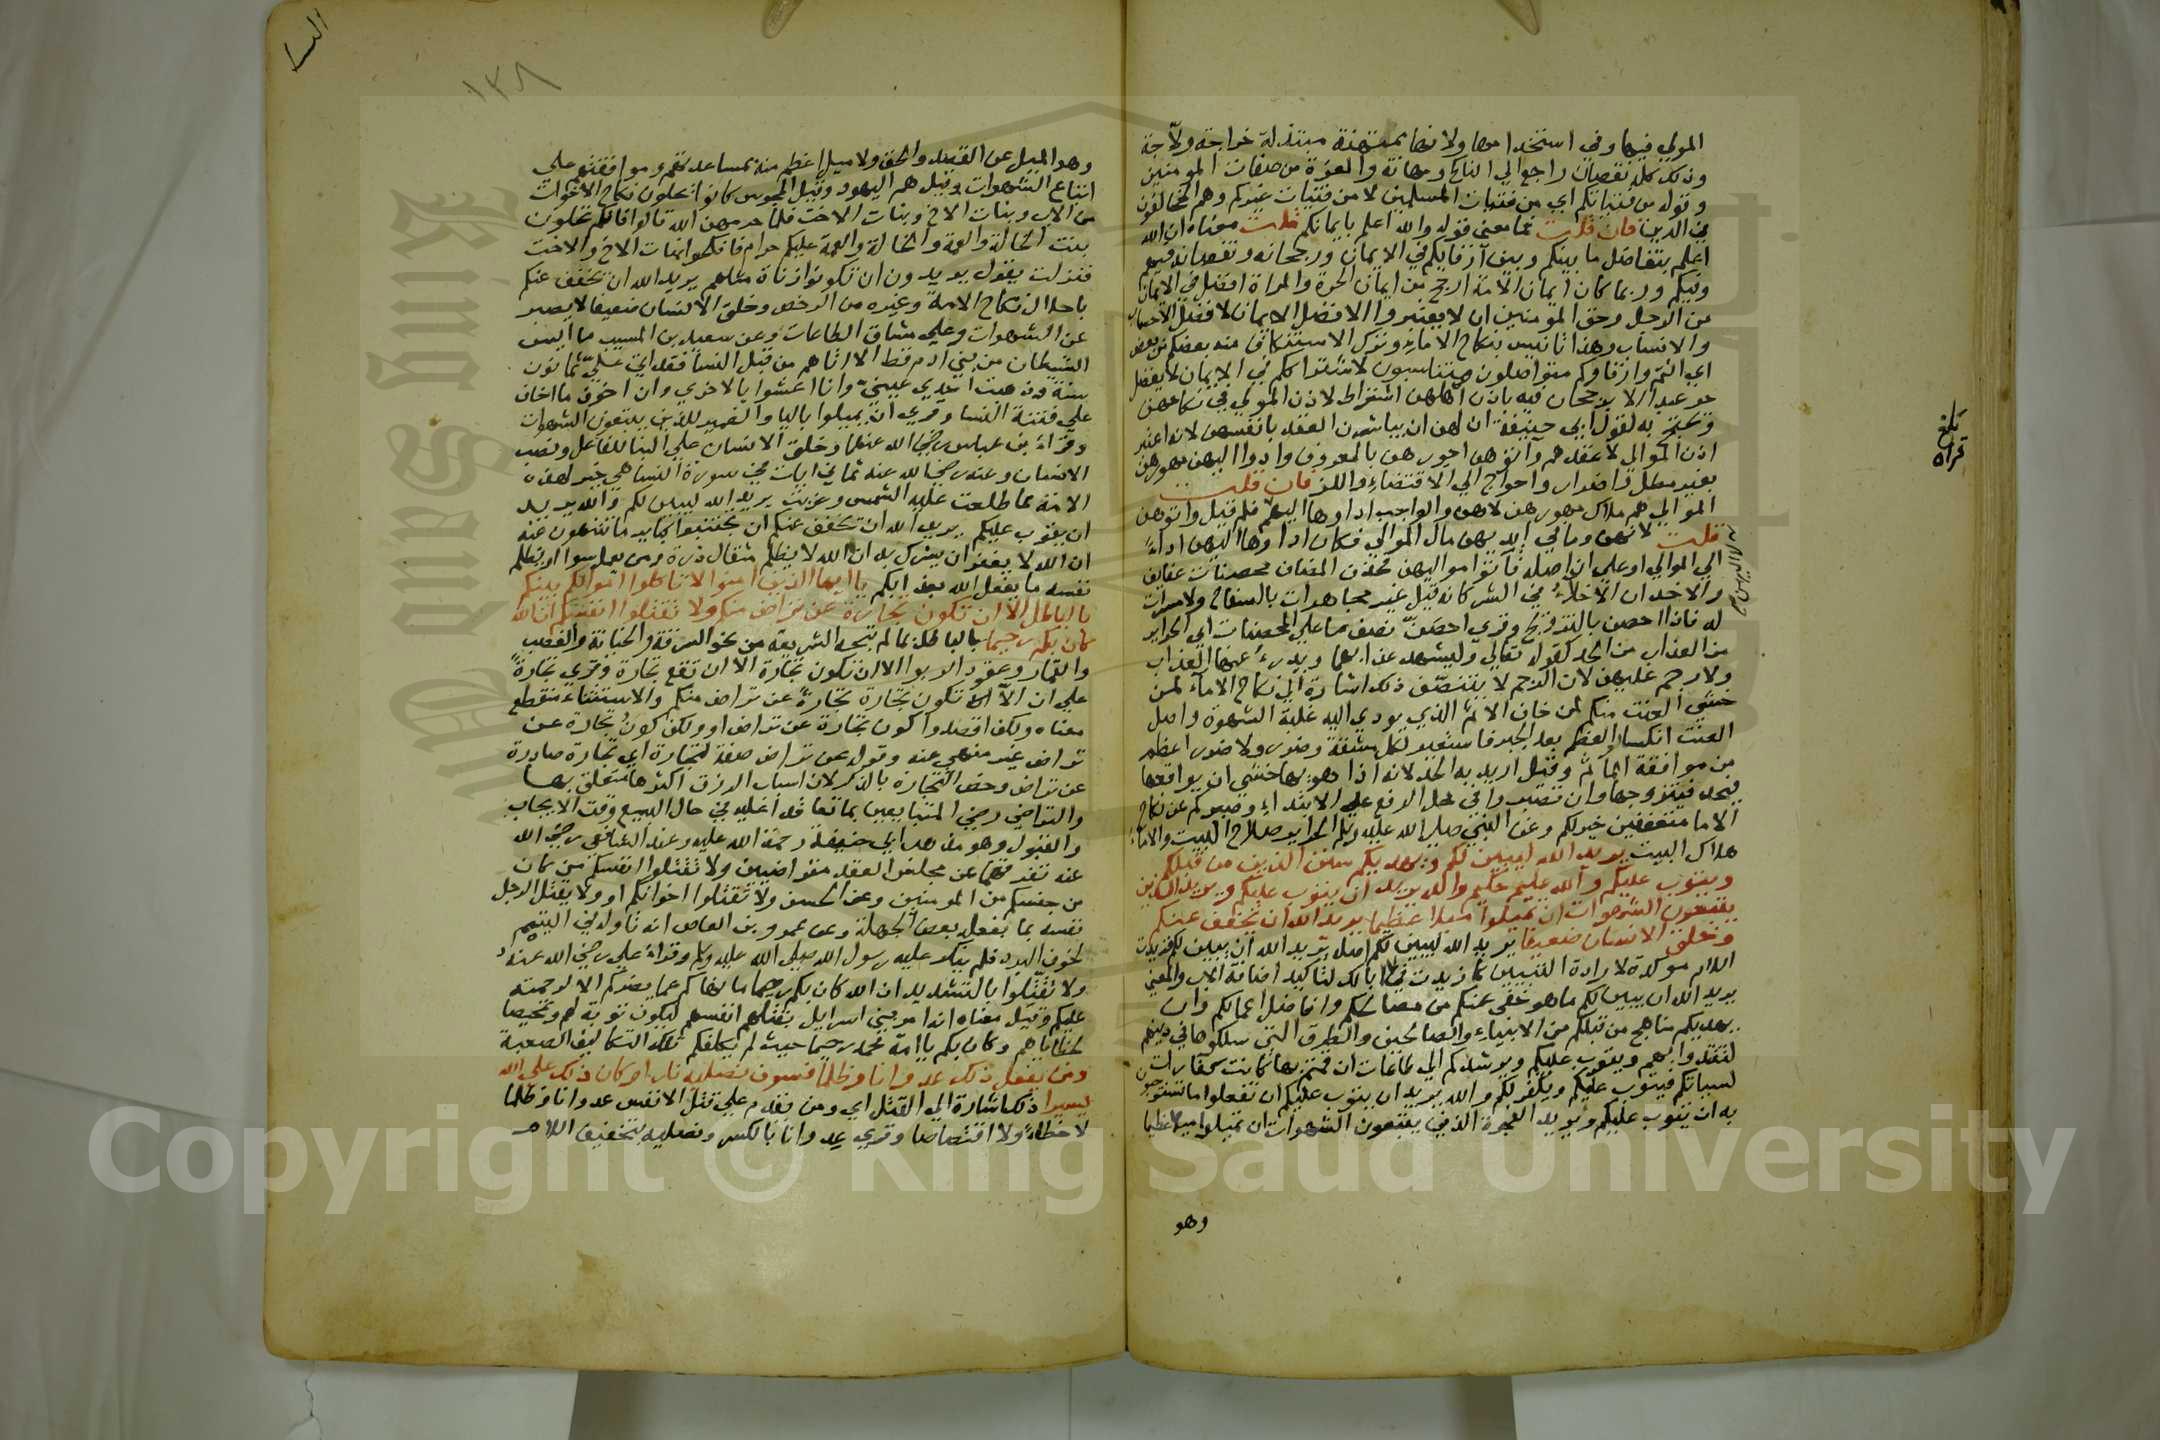 المولي فيها وفي استخدامها ولانها ممتهنة مبتذلة خراجة ولاجة
وذلك كله نقصان راجع الي الناكح ومهانة والعزة من صفات المومنين
وقوله من فتياتكم اي من فتيات المسلمين لا من فتيات غيركم وهم المخالفون
في الدين فان قلت فما معني قوله والله اعلم بايمانكم قلت معناه ان الله
اعلم بتفاضل ما بينكم وبين ارقايكم في الايمان ورجحانه ونقصانه فيهم
وفيكم وربما كان ايمان الامة ارجح من ايمان الحرة والمراة افضل في الايمان
من الرجل وحق المومنين ان لا يعتبروا الا فضل الايمان لا فضل الاحساب
والانساب وهذا تانيس بنكاح الاماء وترك الاستنكاف منه بعضكم من بعض
اي انتم وارقاوكم متواصلون متناسبون لاشتراككم في الايمان لا يفضل
حر عبدا الا برجحان فيه باذن اهلهن اشتراط لاذن الموالي في نكاحهن
ويحتج به لقول ابي حنيفة ان لهن ان يباشرن العقد بانفسهن لانه اعتبر
اذن الموالي لا عقدهم واتوهن اجورهن بالمعروف وادوا اليهن مهورهن
بغير مطل وضرار واحواج الي الاقتضاء واللز فان قلت
الموالي هم ملاك مهورهن لاهن والواجب اداوها اليهم فلم قيل واتوهن
قلت لانهن وما في ايديهن مال الموالي فكان اداوها اليهن اداء
الي الموالي او علي ان اصله فاتوا مواليهن فحذف المضاف محصنات عفايف
والاخدان الاخلاء في السر كانه قيل غير مجاهرات بالسفاح ولا مسرات
له فاذا احصن بالتزويج وقري احصن نصف ما علي المحصنات اي الحراير
من العذاب من الحد كقوله تعالي وليشهد عذابهما ويدرء عنها العذاب
ولا رجم عليهن لان الرجم لا يتنصف ذلك اشارة الي نكاح الاماء لمن
خشي العنت منكم لمن خاف الاثم الذي يودي اليه غلبة الشهوة واصل
العنت انكسار العظم بعد الجبر فاستعير لكل مشقة وضرر ولا ضرر اعظم
من مواقعة المآثم وقيل اريد به الحد لانه اذا هويها خشي ان يواقعها
فيحد فيتزوجها وان تصبروا في محل الرفع علي الابتداء وصبركم عن نكاح
الاما متعففين خير لكم وعن النبي صلي الله عليه وسلم الحراير صلاح البيت والاماء
هلاك البيت يريد الله ليبين لكم ويهديكم سنن الذين من قبلكم
ويتوب عليكم والله عليم حكيم والله يريد ان يتوب عليكم ويريد الذين
يتبعون الشهوات ان تميلوا ميلا عظيما يريد الله ان يخفف عنكم
وخلق الانسان ضعيفا يريد الله ليبين لكم اصله يريد الله ان يبين لكم فزيدت
اللام موكدة لارادة التبيين كما زيدت في لا ابا لك لتاكيد اضافة الاب والمعني
يريد الله ان يبين لكم ما هو خفي عنكم من مصالحكم وافاضل اعمالكم وان
يهديكم مناهج من قبلكم من الانبياء والصالحين والطرق التي سلكوها في دينهم
لتقتدوا بهم ويتوب عليكم ويرشدكم الي طاعات ان قمتم بها كانت كفارات
لسياتكم فيتوب عليكم ويكفر لكم والله يريد ان يتوب عليكم ان تفعلوا ما تستوجبون
به ان يتوب عليكم ويريد الفجرة الذين يتبعون الشهوات ان تميلوا ميلا عظيما
وهو
بلغ
قراة
النسا
١٣٨
وهو الميل عن القصد والحق ولا ميل اعظم منه بمساعدتهم وموافقتهم علي
اتباع الشهوات وقيل هم اليهود وقيل المجوس كانوا يحلون نكاح الاخوات
من الاب وبنات الاخ وبنات الاخت فلما حرمهن الله قالوا فانكم تحلون
بنت الخالة والعمة والخالة والعمة عليكم حرام فانكحوا بنات الاخ والاخت
فنزلت يقول يريدون ان تكونوا زناة مثلهم يريد الله ان يخفف عنكم
باحلال نكاح الامة وغيره من الرخص وخلق الانسان ضعيفا لا يصبر
عن الشهوات وعلي مشاق الطاعات وعن سعيد بن المسيب ما ايس
الشيطان من بني ادم قط الا اتاهم من قبل النسا فقد اتي علي ثمانون
سنة وذهبت احدي عيني وانا اعشوا بالاخري وان اخوف ما اخاف
علي فتنة النسا وقري ان يميلوا باليا والضمير للذين يتبعون الشهوات
وقراة بن عباس رضي الله عنهما وخلق الانسان علي البنا للفاعل ونصب
الانسان وعنه رضي الله عنه ثماني ايات في سورة النسا هي خير لهذه
الامة مما طلعت عليه الشمس وغربت يريد الله ليبين لكم والله يريد
ان يتوب عليكم يريد الله ان يخفف عنكم ان تجتنبوا كباير ما تنهون عنه
ان الله لا يغفر ان يشرك به ان الله لا يظلم مثقال ذرة ومن يعمل سوا او يظلم
نفسه ما يفعل الله بعذابكم يا ايها الذين امنوا لا تاكلوا اموالكم بينكم
بالباطل الا ان تكون تجارة عن تراض منكم ولا تقتلوا انفسكم ان الله
كان بكم رحيما بالباطل بما لم تبحه الشريعة من نحو السرقة والخيانة والغصب
والقمار وعقود الربوا الا ان تكون تجارة الا ان تقع تجارة وقري تجارة
علي ان الا ان تكون تجارة تجارة عن تراض منكم والاستثناء منقطع
معناه ولكن اقصدوا كون تجارة عن تراض او ولكن كون تجارة عن
تراض غير منهي عنه وقوله عن تراض صفة لتجارة اي تجارة صادرة
عن تراض وخص التجارة بالذكر لان اسباب الرزق اكثرها متعلق بها
والتراضي رضي المتبايعين بما تعاقدا عليه في حال البيع وقت الايجاب
والقبول وهو مذهب ابي حنيفة رحمة الله عليه وعند الشافعي رضي الله
عنه تفرقهما عن مجلس العقد متراضيين ولا تقتلوا انفسكم من كان
من جنسكم من المومنين وعن الحسن ولا تقتلوا اخوانكم او ولا يقتل الرجل
نفسه بما يفعله بعض الجهلة وعن عمرو بن العاص انه تاوله في التيمم
لخوف البرد فلم ينكر عليه رسول الله صلي الله عليه وسلم وقراة علي رضي الله عنه
ولا تقتلوا بالتشديد ان الله كان بكم رحيما ما نهاكم عما يضركم الا لرحمته
عليكم وقيل معناه انه امر بني اسرايل بقتلهم انفسهم ليكون توبة لهم وتمحيصا
لخطاياهم وكان بكم يا امة محمد رحيما حيث لم يكلفكم تلك التكاليف الصعبة
ومن يفعل ذلك عدوانا وظلما فسوف نصليه نارا وكان ذلك علي الله
يسيرا ذلك اشارة الي القتل اي ومن يقدم علي قتل الانفس عدوانا وظلما
لا خطاء ولا اقتصاصا وقري عدوانا بالكسر ونصليه بتخفيف اللام
King Saud University
Copyright © King Saud University